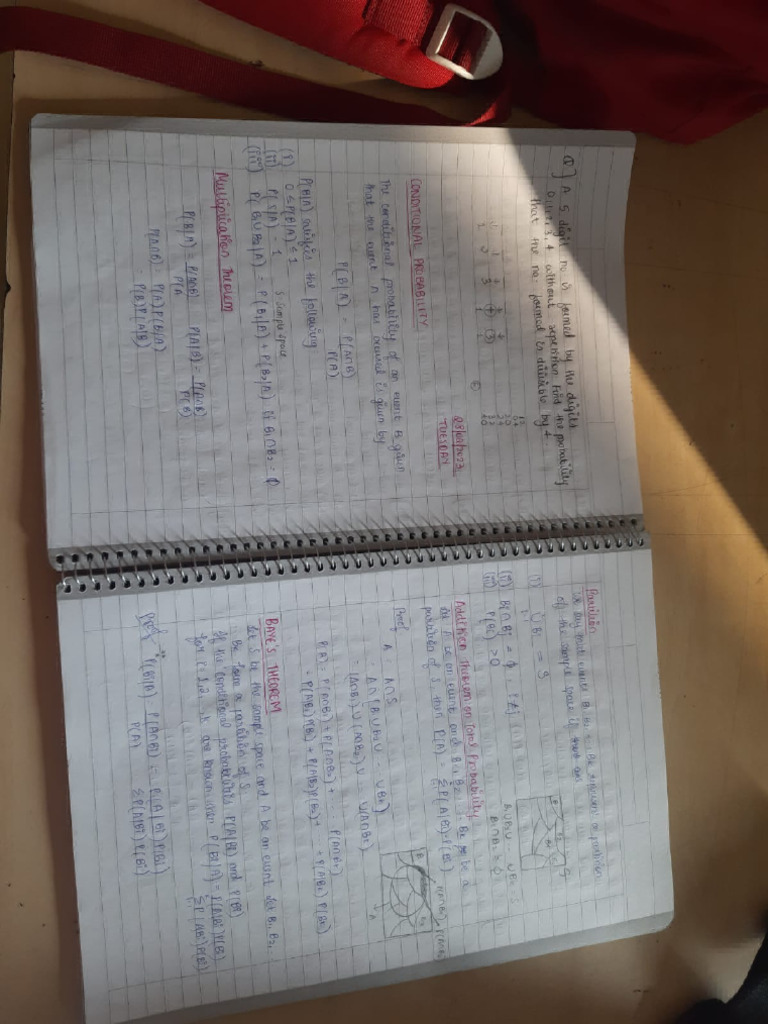 Q] A 5 digit no is formed by the digits
0,1,2,3,4 without repetition Find the probability
that the no: formed is divisible by 4.
12
04
20
24
32
40
03/01/2023
TUESDAY
CONDITIONAL PROBABILITY
The conditional probability of an event B given
that the event A has occured is given by
P(B|A) = P(A∩B)
P(A)
P(B|A) satisfies the following
(i) 0 ≤ P(B|A) ≤ 1
(ii) P(S|A) = 1 S sample space
(iii) P(B₁∪B₂|A) = P(B₁|A) + P(B₂|A) if B₁∩B₂ = φ
Multiplication Theorem
P(B|A) = P(A∩B) P(A|B) = P(A∩B)
P(A P(B)
P(A∩B) = P(A) P(B|A)
= P(B) P(A|B)
Partition
We say that events B₁, B₂ Bk represent a partition
of the sample space if
(i) ∪ Bi = S
(ii) Bi ∩ Bj = φ, i≠j
(iii) P(Bi) > 0
Addition Theorem on Total Probability
Let A be an event and B₁, B₂, .. Bk be a
partition of S, then P(A) = Σ P(A|Bi) P(Bi)
Proof A = A∩S
= A∩(B₁∪B₂∪ - ∪Bk)
= (A∩B₁)∪(A∩B₂)∪ - ∪(A∩Bk)
P(A) = P(A∩B₁) + P(A∩B₂) + ... P(A∩Bk)
= P(A|B₁)P(B₁) + P(A|B₂)P(B₂) + + P(A|Bk) P(Bk)
BAYE'S THEOREM
Let S be the sample space and A be an event let B₁, B₂, ..
Bk form a partition of S.
If the conditional probabilities P(A|Bi) and P(Bi)
for i=1,2,..k are known then P(Bi|A) = P(A|Bi)P(Bi)
Σ P(A|Bi)P(Bi)
Proof P(Bi|A) = P(A∩Bi) = P(A|Bi)P(Bi)
P(A) Σ P(A|Bi) P(Bi)